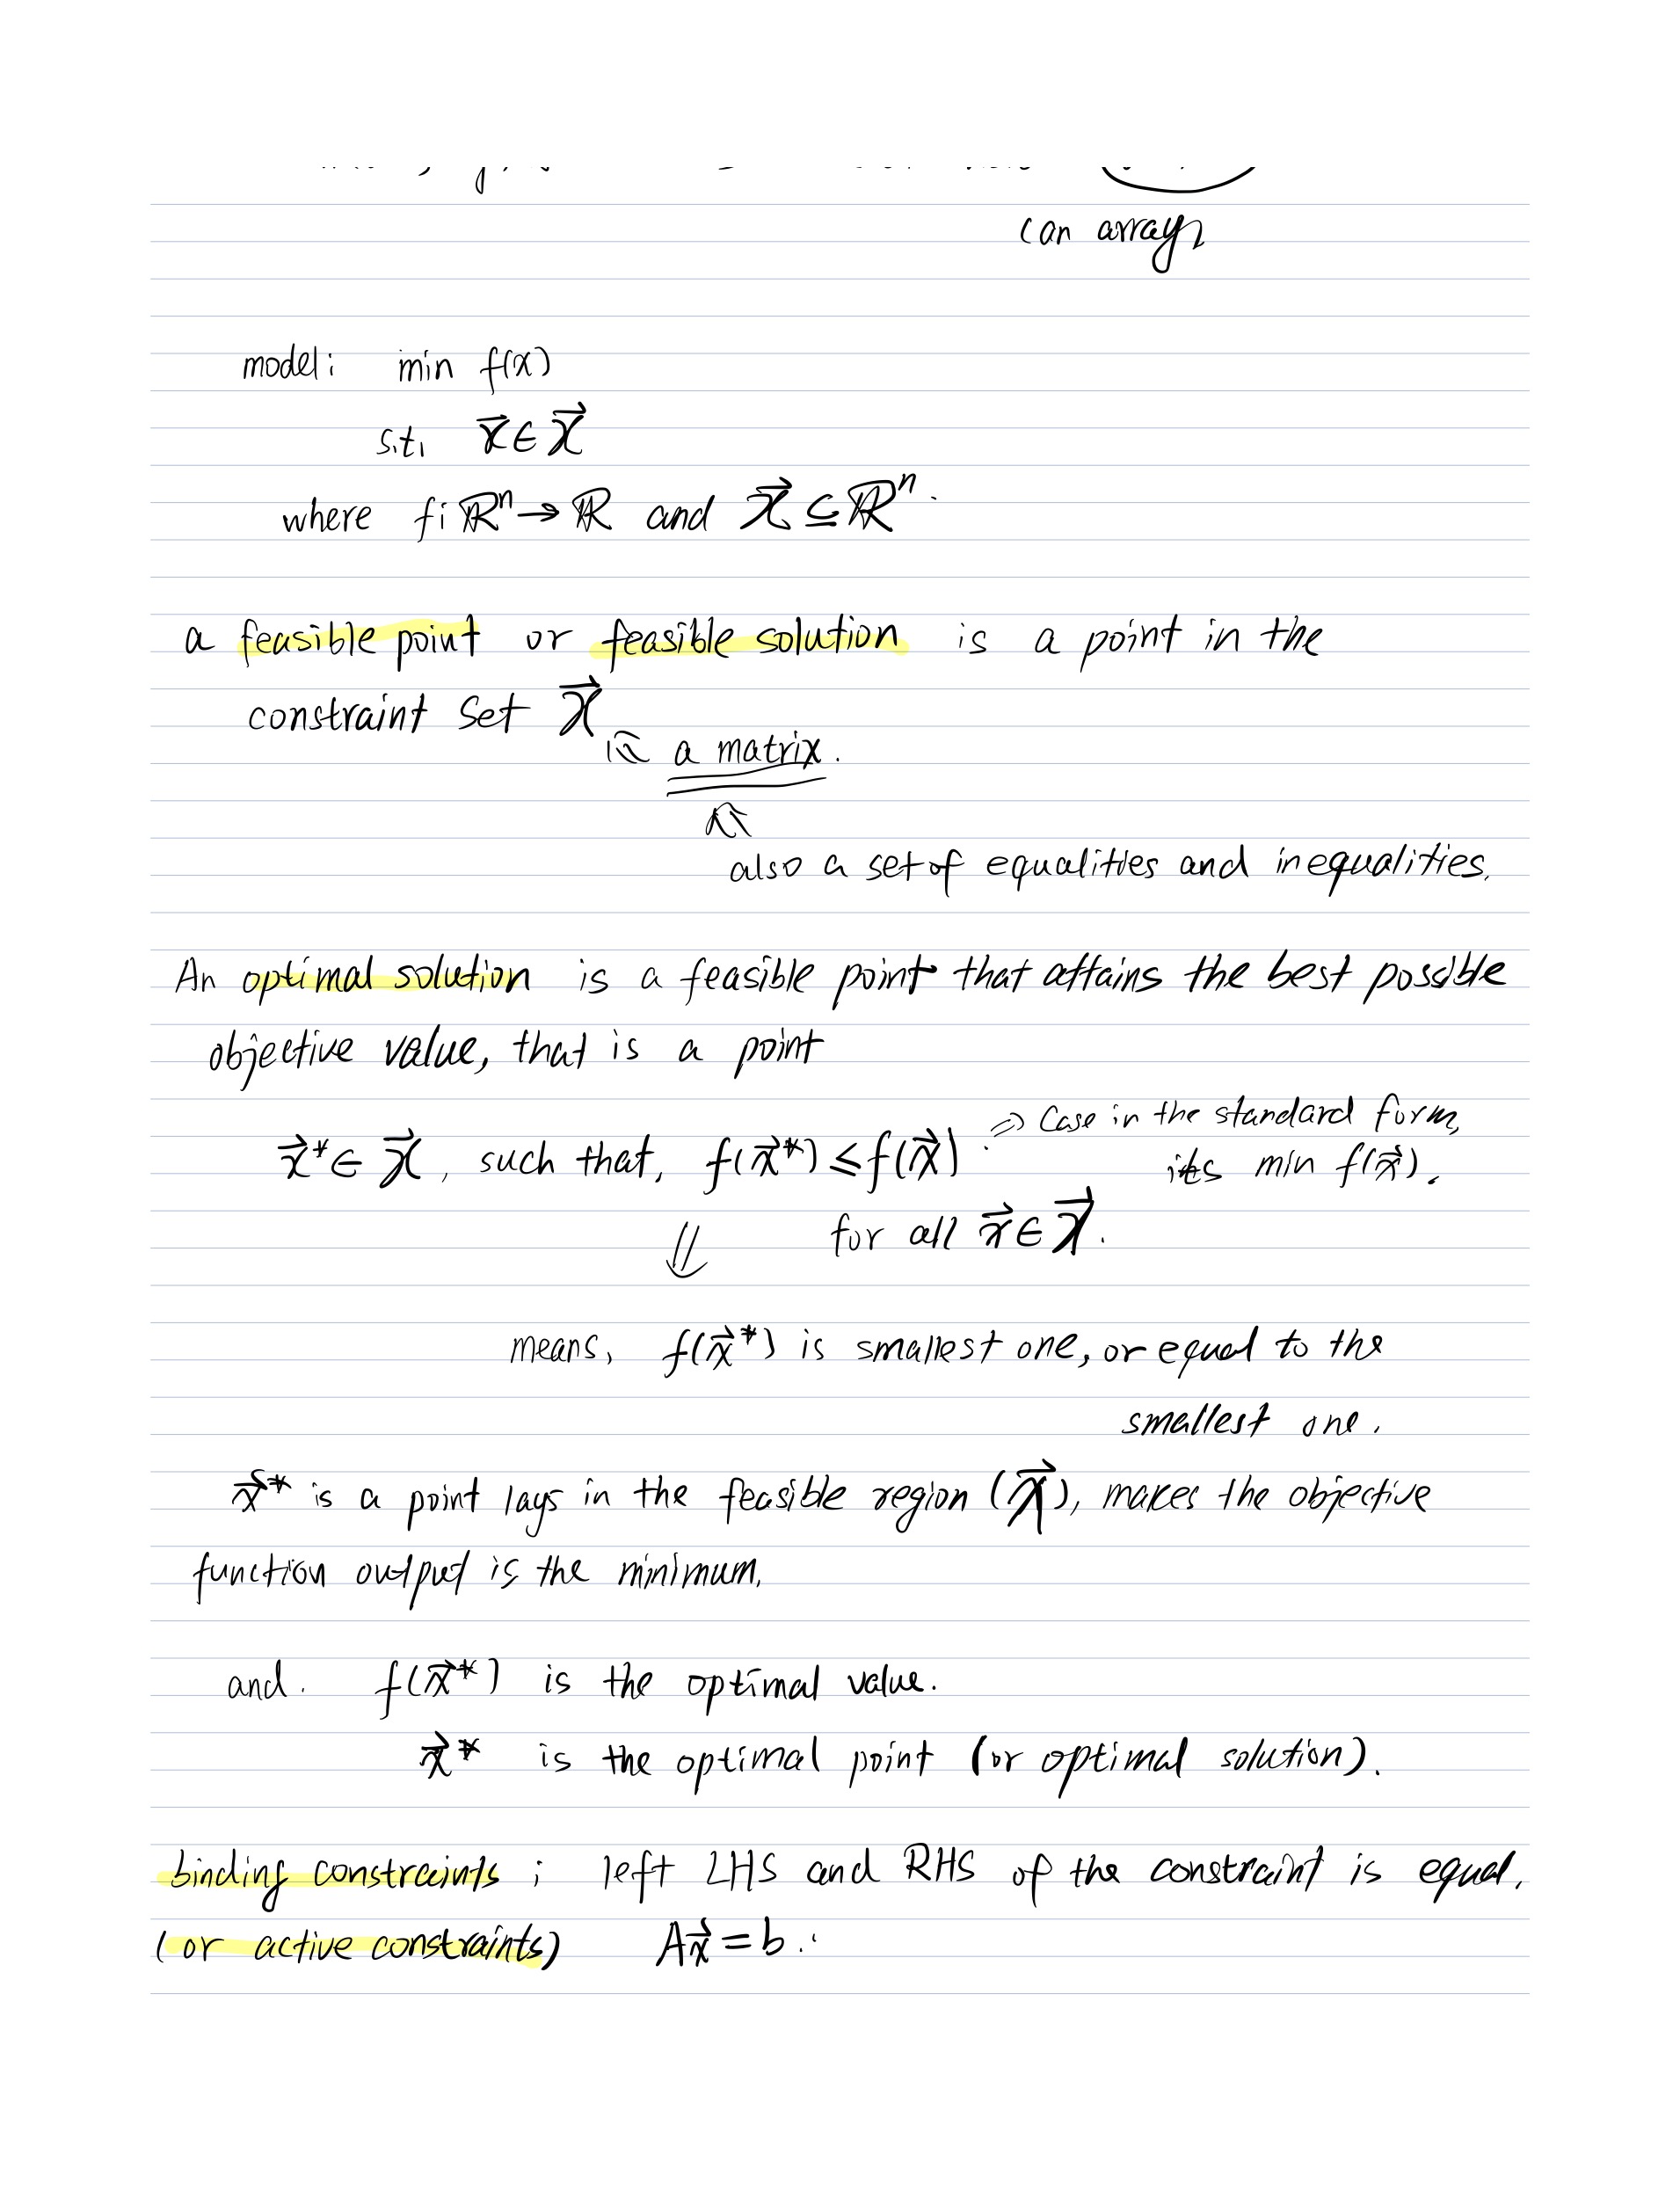 (an array)
model: min f(x)
s.t. x⃗ ∈ X⃗
where f: ℝⁿ → ℝ and X⃗ ⊆ ℝⁿ.
a feasible point or feasible solution is a point in the
constraint set X⃗
⇐ a matrix.
⇑
also a set of equalities and inequalities.
An optimal solution is a feasible point that attains the best possible
objective value, that is a point
⇒ Case in the standard form,
x⃗* ∈ X⃗, such that, f(x⃗*) ≤ f(x⃗) its min f(x⃗).
⇓ for all x⃗ ∈ X⃗.
means, f(x⃗*) is smallest one, or equal to the
smallest one.
x⃗* is a point lays in the feasible region (X⃗), makes the objective
function output is the minimum.
and. f(x⃗*) is the optimal value.
x⃗* is the optimal point (or optimal solution).
binding constraints : left LHS and RHS of the constraint is equal.
(or active constraints) Ax⃗ = b.